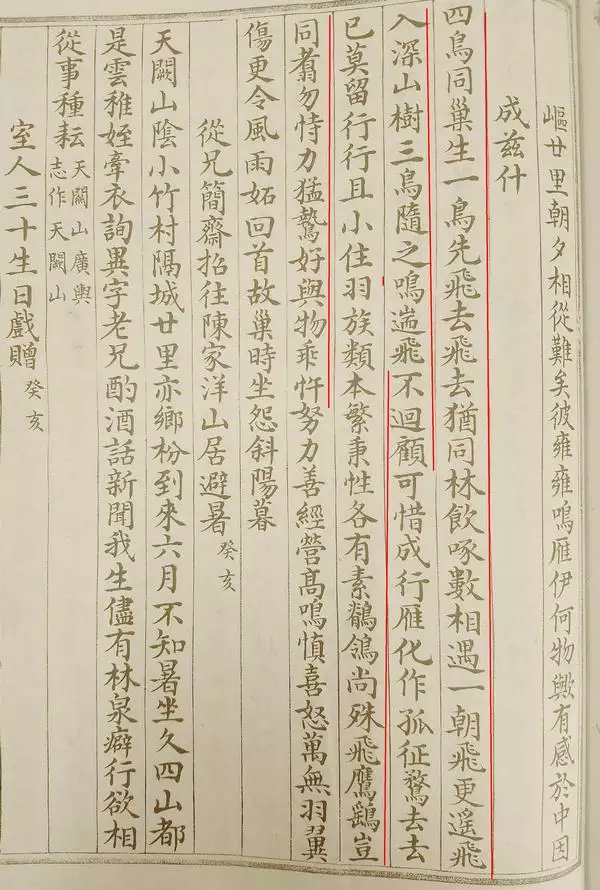 嶇廿里朝夕相從難矣彼雍雍鳴雁伊何物歟有感於中因
成兹什
四鳥同巢生一鳥先飛去飛去猶同林飲啄數相遇一朝飛更遥飛
入深山樹三鳥隨之鳴遄飛不迴顧可惜成行雁化作孤征鶩去去
已莫留行行且小住羽族類本繁秉性各有素鶺鴒尚殊飛鷹鸇豈
同翥勿恃力猛鷙好與物乖忤努力善經營高鳴慎喜怒萬無羽翼
傷更令風雨妬回首故巢時坐怨斜陽暮
從兄簡齋招往陳家洋山居避暑癸亥
天闕山陰小竹村隔城廿里亦鄉枌到來六月不知暑坐久四山都
是雲稚姪牽衣詢異字老兄酌酒話新聞我生儘有林泉癖行欲相
從事種耘天闕山廣輿志作天闕山
室人三十生日戲贈癸亥